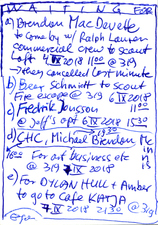 WAITING FOR
a) Brendon MacDevette
to come by w/ Ralph Lauren
commercial crew to scout
Loft 4 IX 2018 1100 @ 319
then cancelled last minute
b) Beer Schmidt to scout
Fire escape @ 319 6 IX 2018
c) Fredrik Jonsson 1100
@ Jeff's apt 6 IX 2018 1530
d) CHC, Michael Brendon Mc
1930
1600 For art business etc
@ 319 7 IX 2018
e) For DYLAN HULL + Amber
to go to Cafe KATJA
7 IX 2018 2130 @ 319